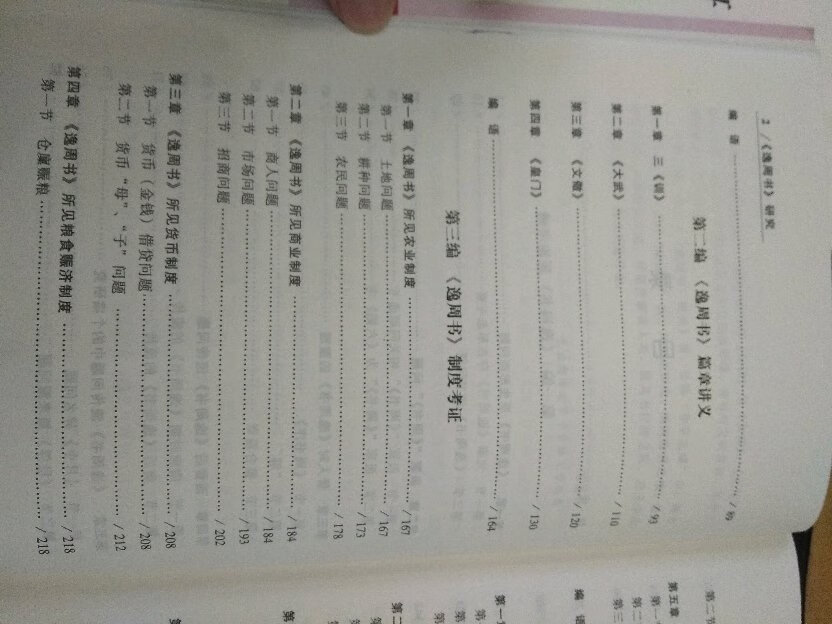 2 /《逸周书》研究
编 语 …… / 89
第二编 《逸周书》篇章讲义
第一章 三《训》 …… / 91
第二章 《大武》 …… / 110
第三章 《文儆》 …… / 120
第四章 《皇门》 …… / 130
编 语 …… / 164
第三编 《逸周书》制度考证
第一章 《逸周书》所见农业制度 …… / 167
第一节 土地问题 …… / 167
第二节 耕种问题 …… / 173
第三节 农民问题 …… / 178
第二章 《逸周书》所见商业制度 …… / 184
第一节 商人问题 …… / 184
第二节 市场问题 …… / 193
第三节 招商问题 …… / 202
第三章 《逸周书》所见货币制度 …… / 208
第一节 货币（金钱）借贷问题 …… / 208
第二节 货币“母”、“子”问题 …… / 212
第四章 《逸周书》所见粮食赈济制度 …… / 218
第一节 仓廪赈粮 …… / 218
第二节
第五章
第一节
第二
第三
编 语
第一
第
第
第二